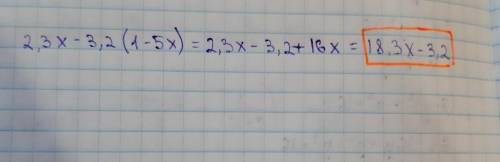 2,3x - 3,2 (1-5x) = 2,3x - 3,2 + 16x = 18,3x - 3,2